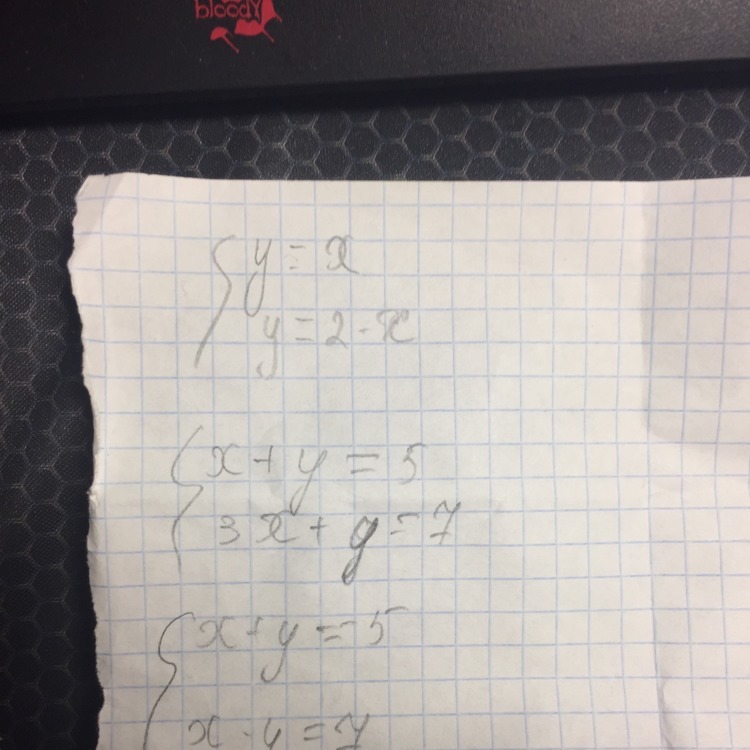 bloody
y = x
y = 2 - x
x + y = 5
3x + y = 7
x + y = 5
x - y = 7